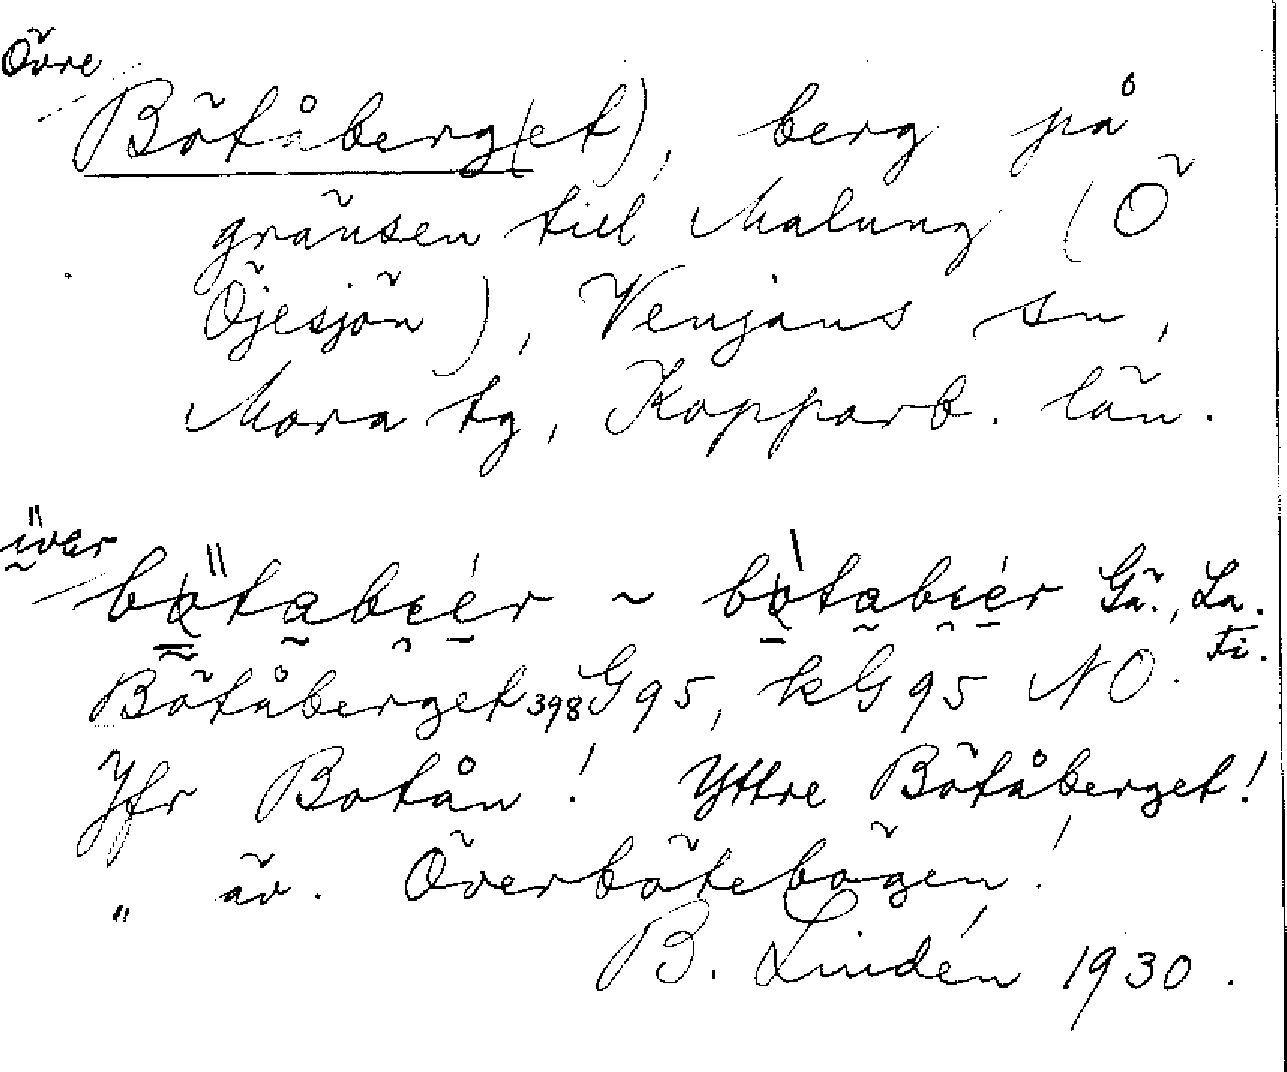 Övre
Bötåberg(et), berg på
gränsen till Malung (Ö
Öjesjön), Venjans sn,
Mora tg, Kopparb. län.
över
Gä., La.
Fi.
Bötåberget 398 G95, kG95 NO.
Jfr Botån! Yttre Bötåberget!
" äv. Överbötebågen!
B. Lindén 1930.